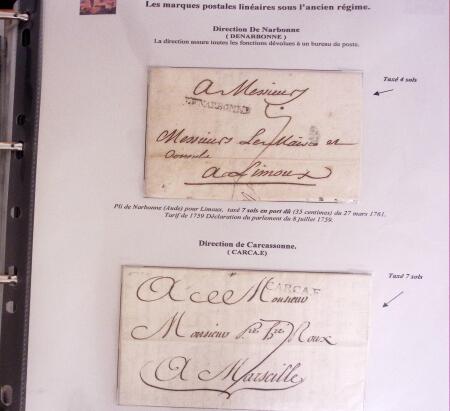 Les marques postales linéaires sous l'ancien régime.
Direction De Narbonne
( DENARBONNE )
La direction assure toutes les fonctions dévolues à un bureau du poste.
Taxé 4 sols
A Messieurs
DENARBONNE
Messieurs Les Maire et
Consuls
A Limoux
Pli de Narbonne (Aude) pour Limoux, taxé 7 sols en port dû (35 centimes) du 27 mars 1761.
Tarif de 1759 Déclaration du parlement du 8 juillet 1759.
Direction de Carcassonne.
( CARCA.E )
Taxé 7 sols
CARCA.E
A Monsieur
Monsieur Roux
A Marseille